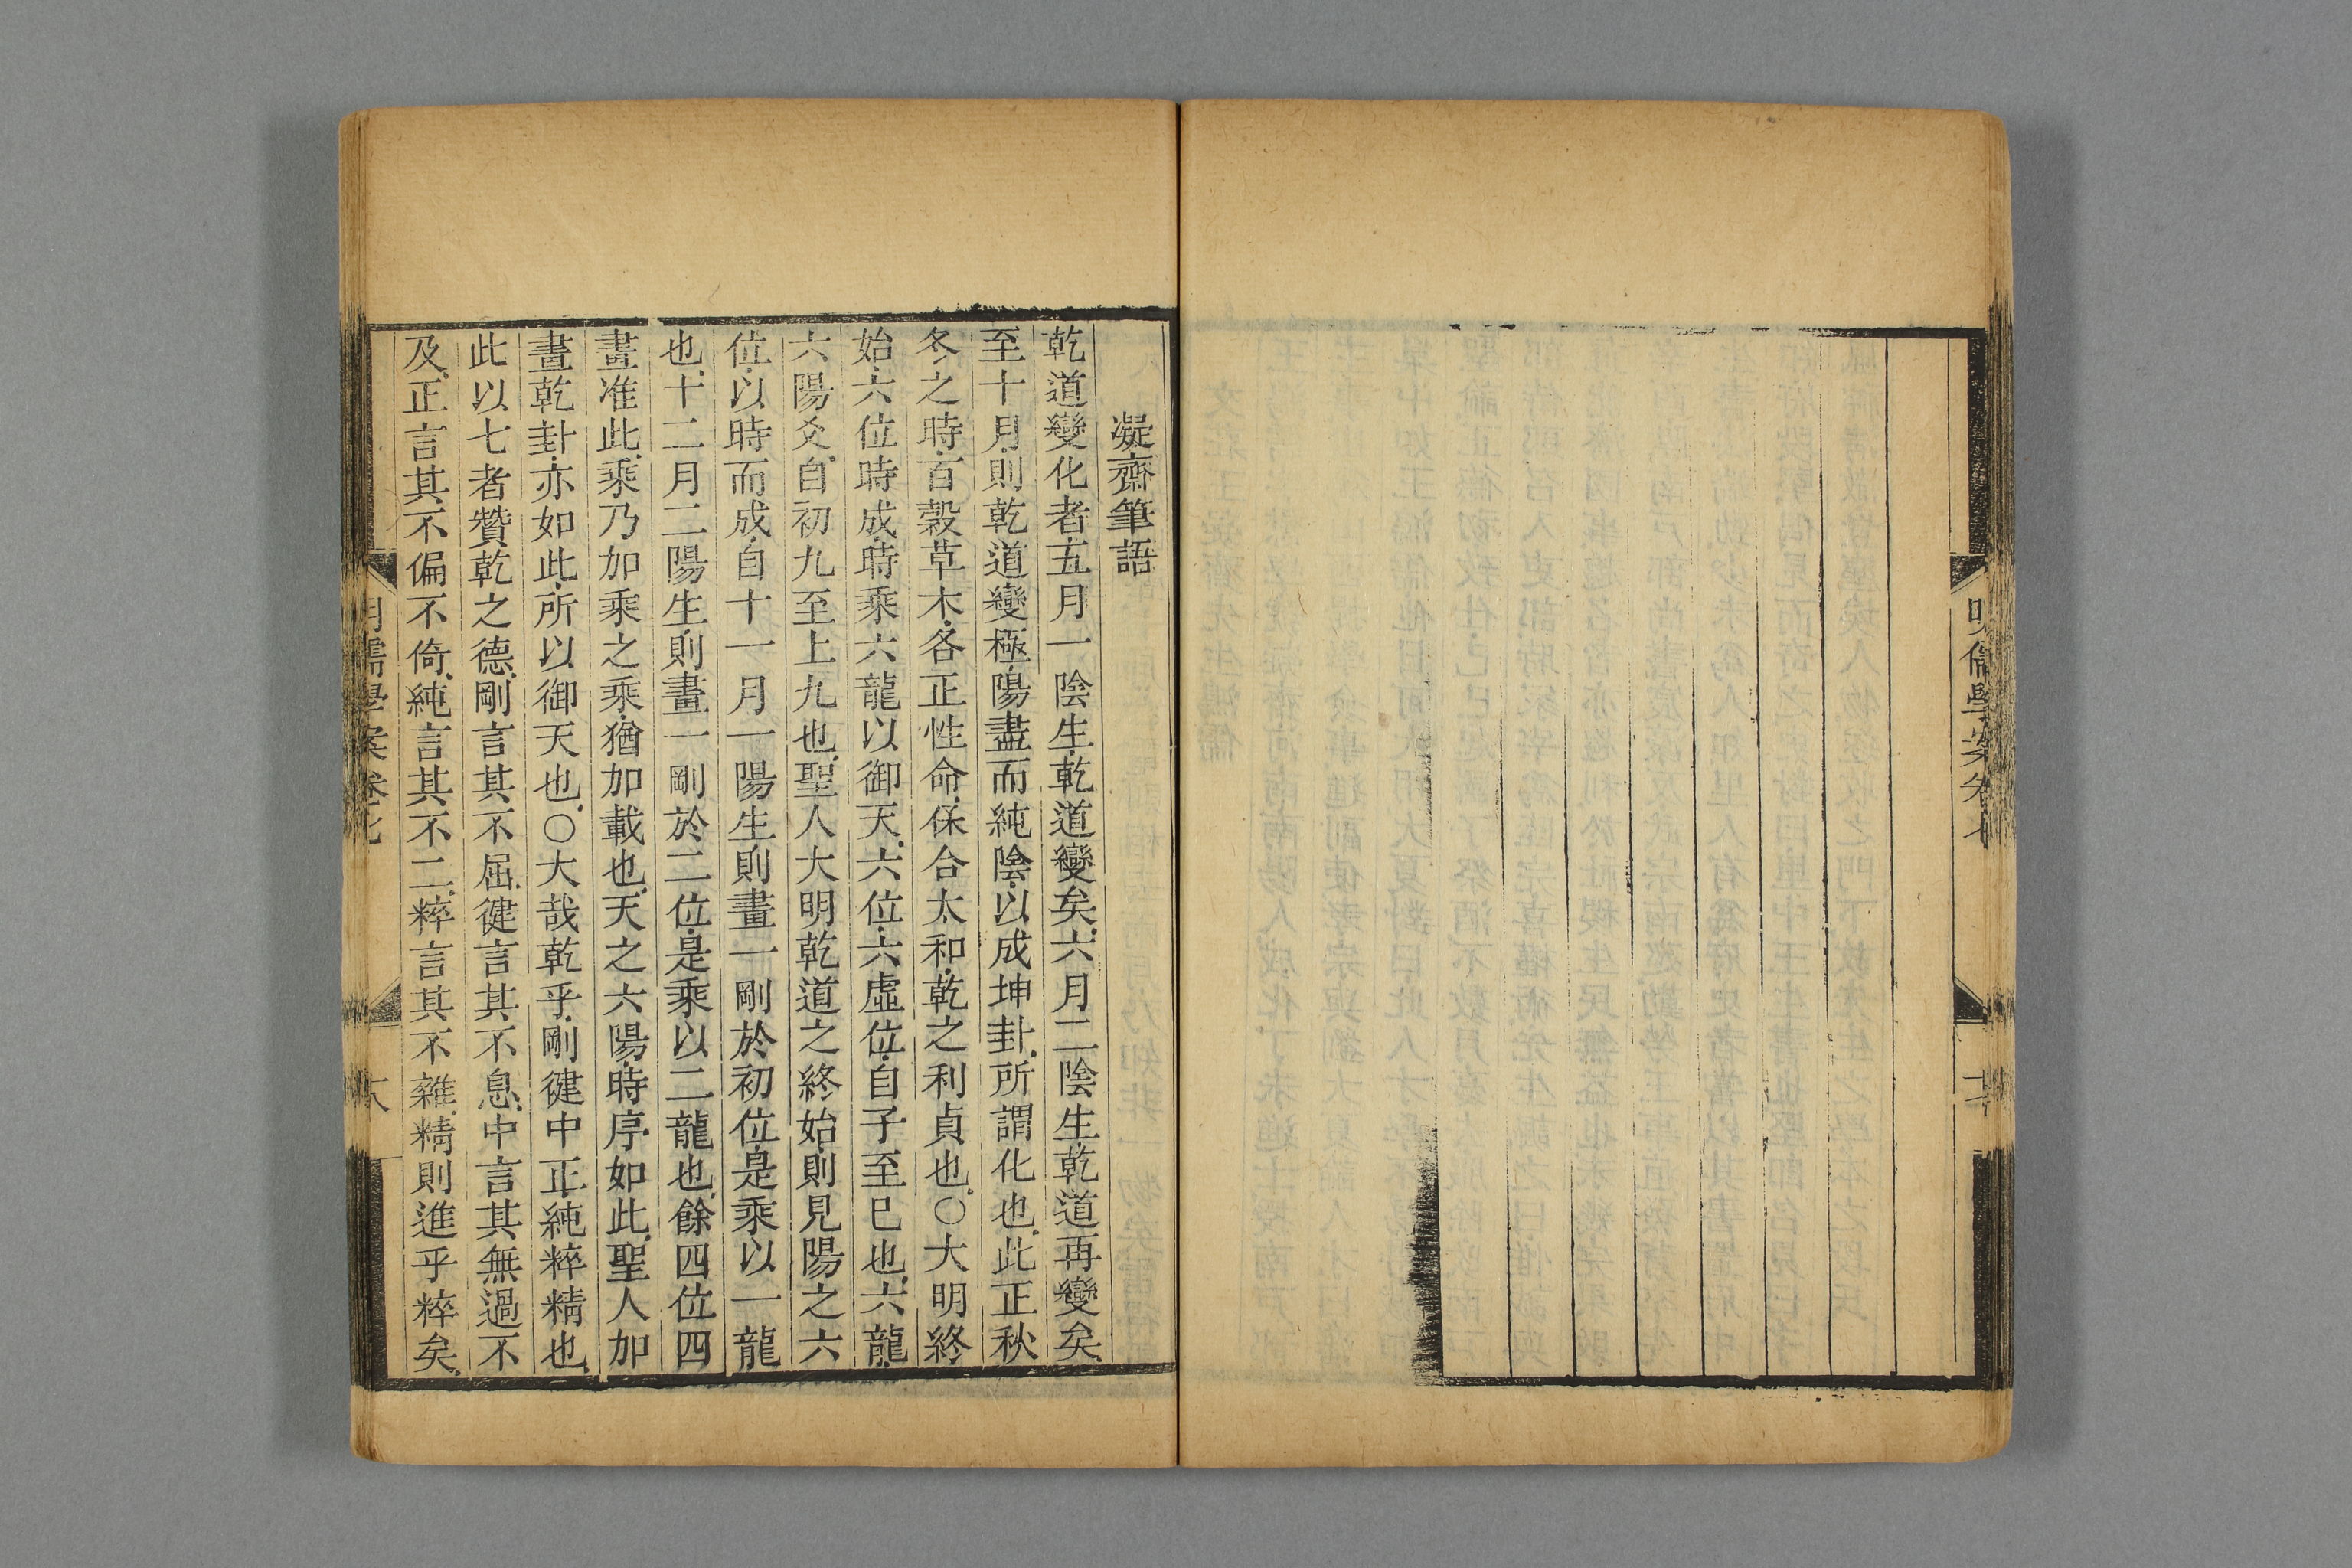 明儒學案卷七
凝齋筆語
乾道變化者五月一陰生乾道變矣六月二陰生乾道再變矣
至十月則乾道變極陽盡而純陰以成坤卦所謂化也此正秋
冬之時百穀草木各正性命保合太和乾之利貞也〇大明終
始六位時成時乘六龍以御天六位六虛位自子至巳也六龍
六陽爻自初九至上九也聖人大明乾道之終始則見陽之六
位以時而成自十一月一陽生則畫一剛於初位是乘以一龍
也十二月二陽生則畫一剛於二位是乘以二龍也餘四位四
畫准此乘乃加乘之乘猶加載也天之六陽時序如此聖人加
畫乾卦亦如此所以御天也〇大哉乾乎剛健中正純粹精也
此以七者贊乾之德剛言其不屈健言其不息中言其無過不
及正言其不偏不倚純言其不二粹言其不雜精則進乎粹矣
明儒學案卷七